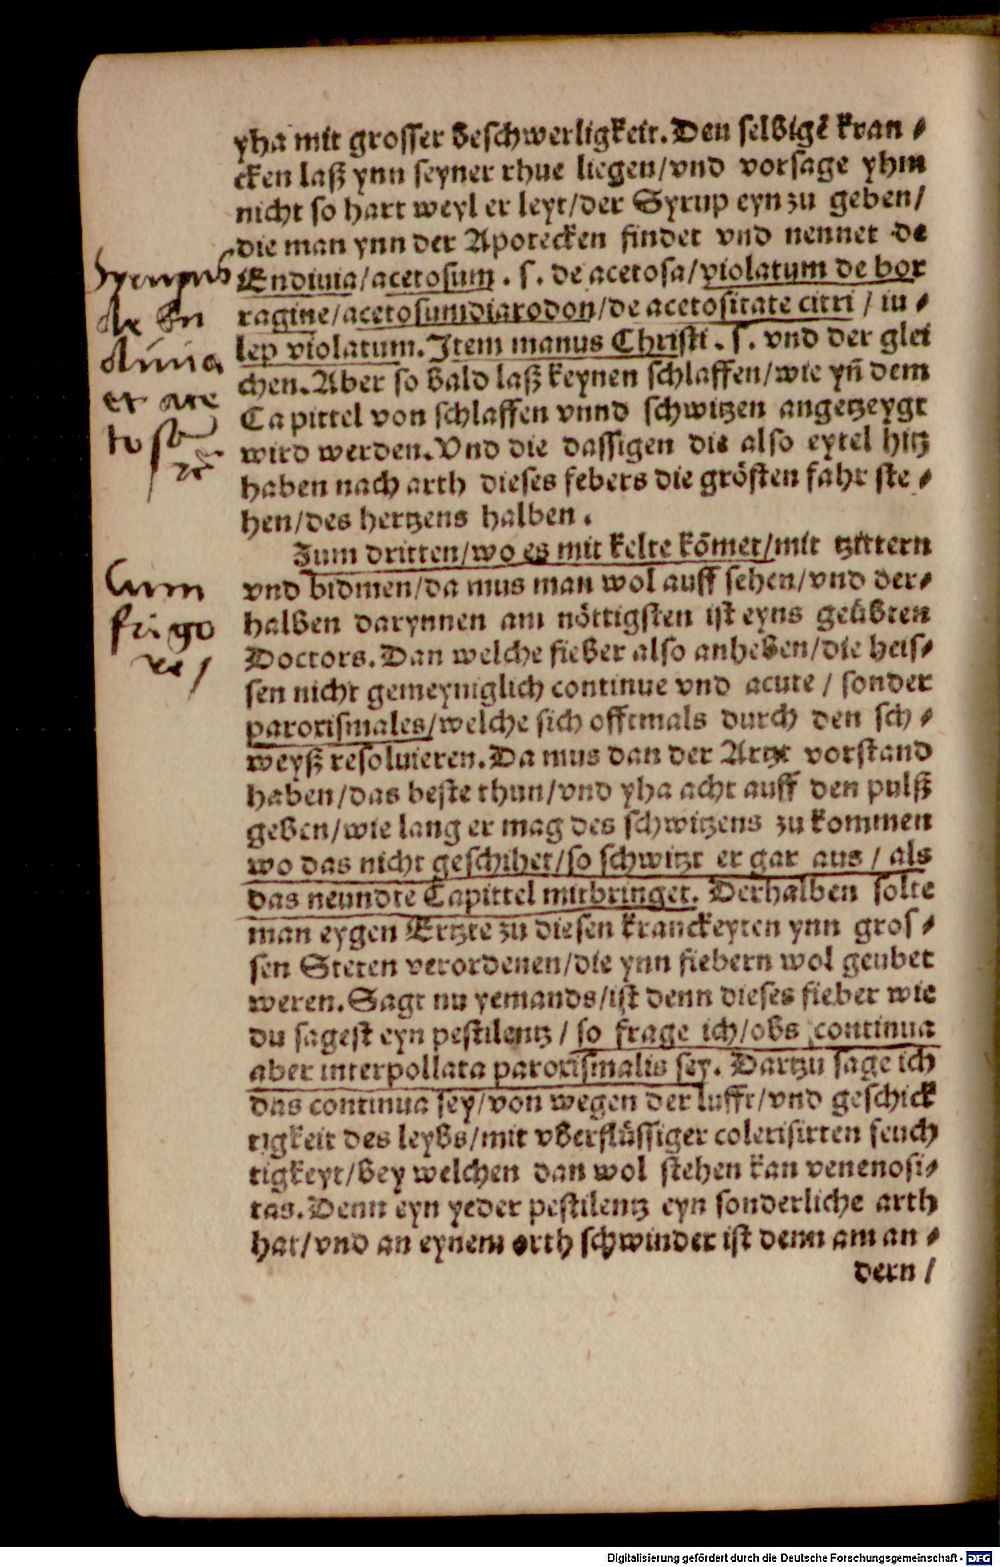 yha mit grosser beschwerligkeit. Den selbigē kran⸗
cken laß ynn seyner rhue liegen/vnd vorsage yhm
nicht so hart weyl er leyt/der Syrup eyn zu geben/
die man ynn der Apotecken findet vnd nennet de
Endiuia/acetosum . s. de acetosa/violatum de bor
ragine/acetosumdiarodon/de acetositate citri / iu⸗
lep violatum. Item manus Christi . s. vnd der glei
chen. Aber so bald laß keynen schlaffen/wie yñ dem
Capittel von schlaffen vnnd schwitzen angetzeygt
wird werden. Vnd die dassigen die also eytel hitz
haben nach arth dieses febers die grösten fahr ste⸗
hen/des hertzens halben .
Zum dritten/wo es mit kelte kōmet/mit tzittern
vnd bidmen/da mus man wol auff sehen/vnd der⸗
halben darynnen am nöttigsten ist eyns geübten
Doctors. Dan welche fieber also anheben/die heis⸗
sen nicht gemeyniglich continue vnd acute / sonder
paroxismales/welche sich offtmals durch den sch⸗
weyß resoluieren. Da mus dan der Artzt vorstand
haben/das beste thun/vnd yha acht auff den pulß
geben/wie lang er mag des schwitzens zu kommen
wo das nicht geschihet/so schwitzt er gar aus / als
das neundte Capittel mitbringet. Derhalben solte
man eygen Ertzte zu diesen kranckeyten ynn gros⸗
sen Steten verordenen/die ynn fiebern wol geubet
weren. Sagt nu yemands/ist denn dieses fieber wie
du sagest eyn pestilentz / so frage ich/obs continua
aber interpollata paroxismalis sey. Dartzu sage ich
das continua sey/von wegen der lufft/vnd geschick
tigkeit des leybs/mit vberflüssiger colerisirten feuch
tigkeyt/bey welchen dan wol stehen kan venenosi⸗
tas. Denn eyn yeder pestilentz eyn sonderliche arth
hat/vnd an eynem orth schwinder ist denn am an⸗
dern /
Syrupus
de En
diuia
et ace
tosa
Cum
frigo
re /
Digitalisierung gefördert durch die Deutsche Forschungsgemeinschaft - DFG